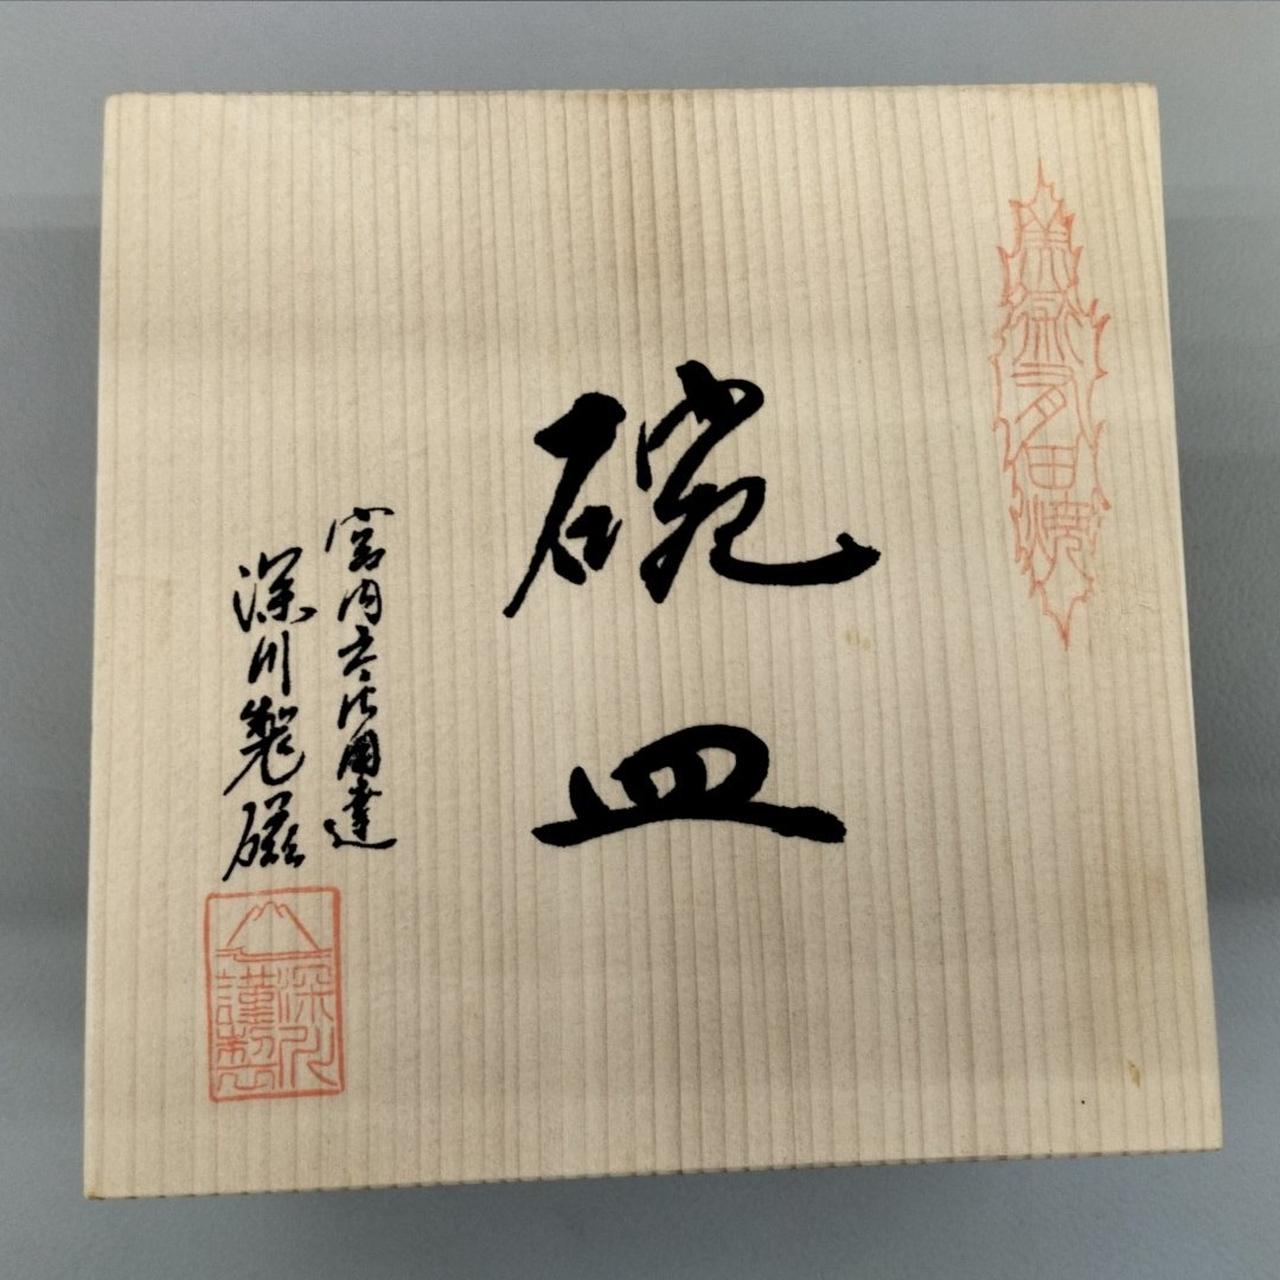 栄有田焼
碗皿
宮内庁御用達
深川製磁
深川
謹製